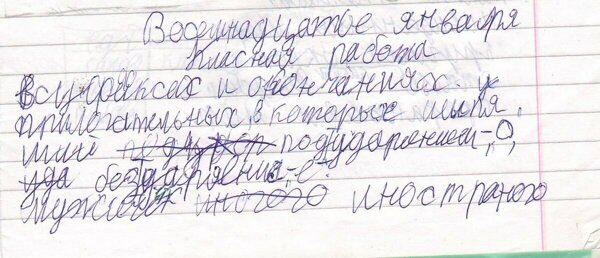 Восемнадцатое января
Класная работа
Всуффиксах и окончаниях
прилогательных в которых шыпя
щий подударением-, О,
без ударения-, е.
Мужской иностраного